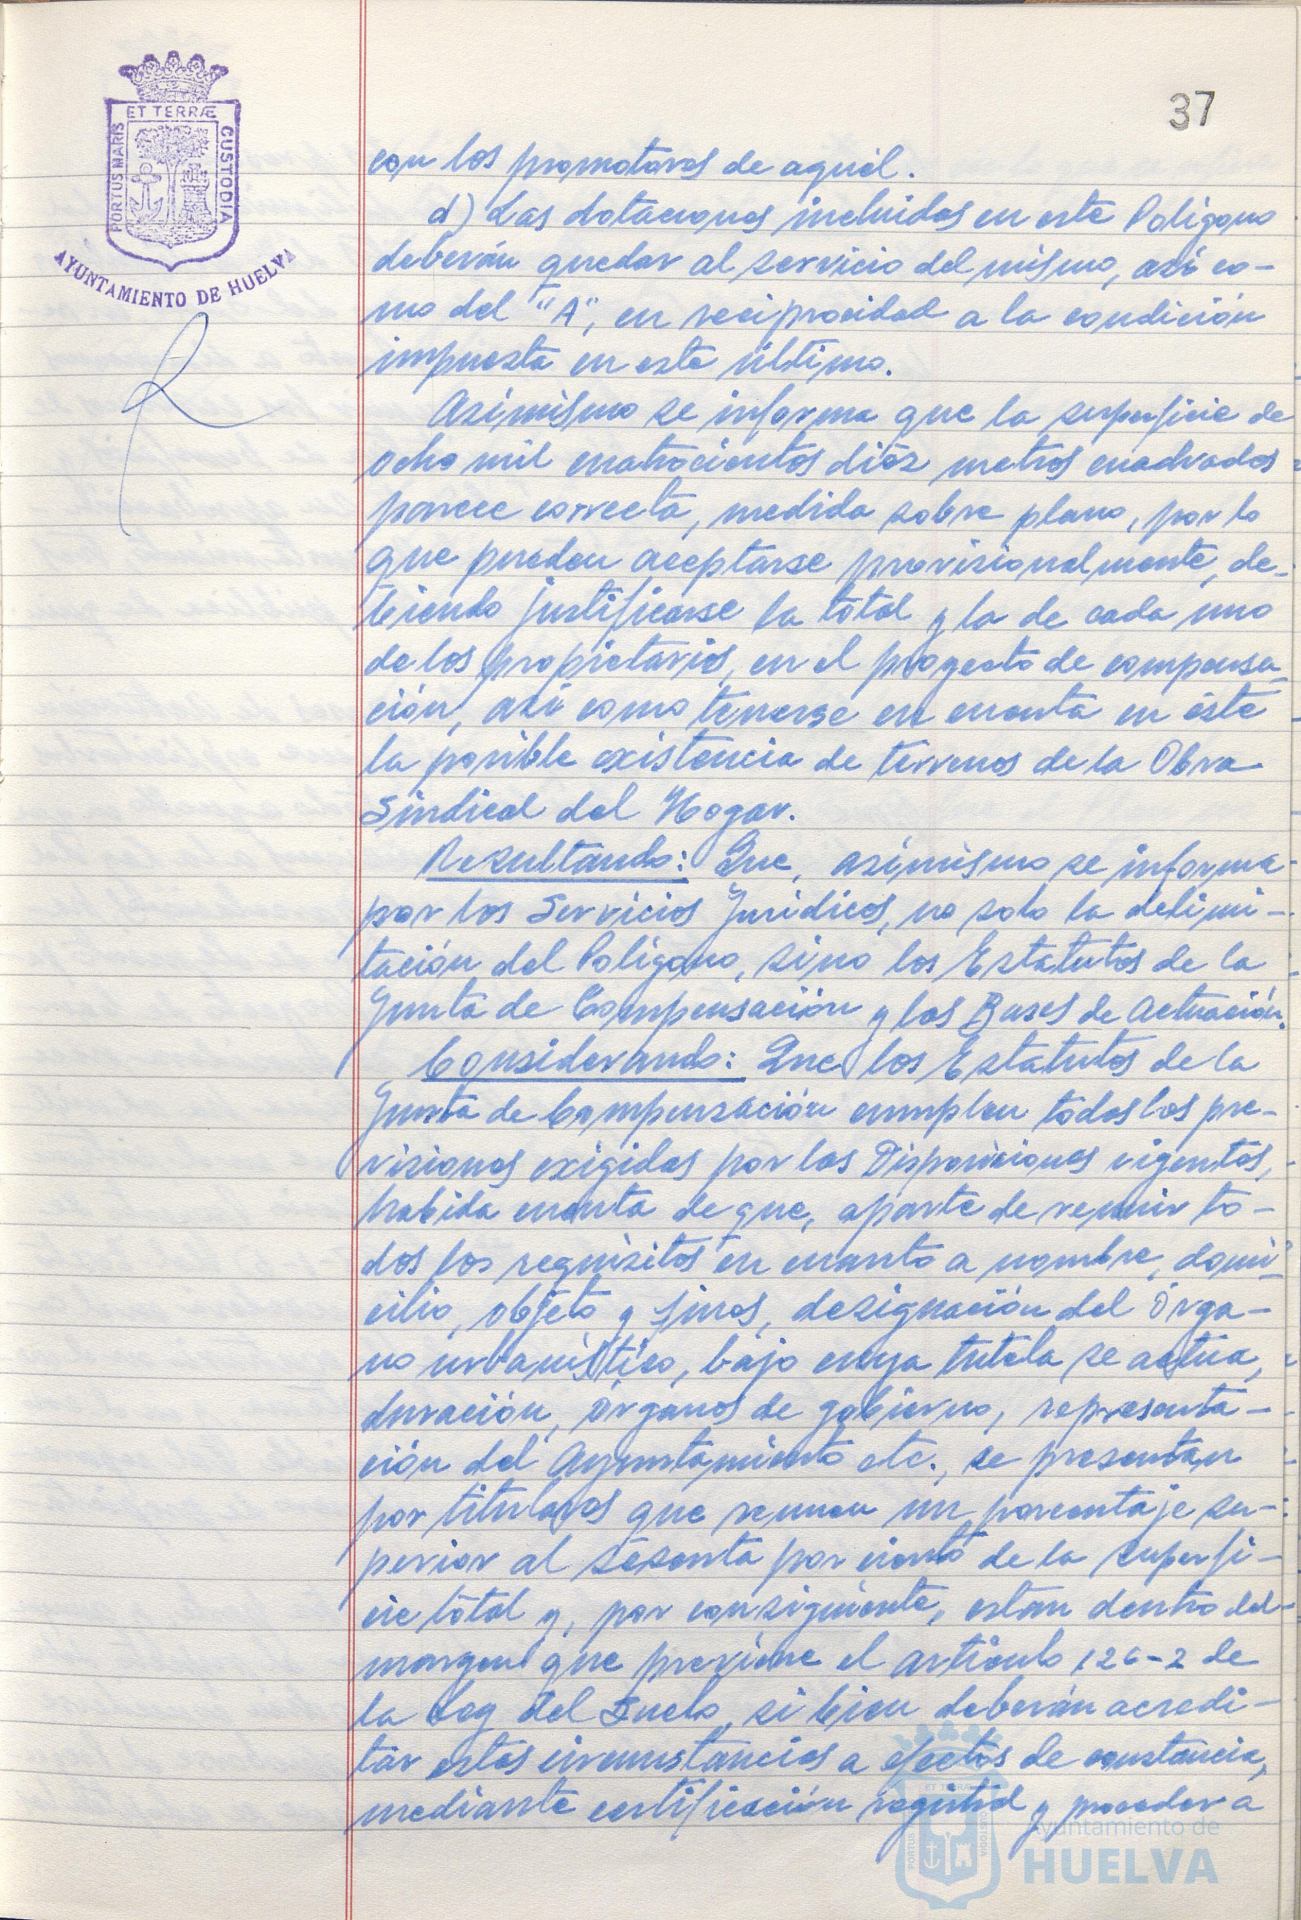 37
ET TERRÆ
PORTUS MARIS
CUSTODIA
AYUNTAMIENTO DE HUELVA
con los promotores de aquél.
d) Las dotaciones incluidas en este Polígono
deberán quedar al servicio del mismo, así co-
mo del "A", en reciprocidad a la condición
impuesta en este último.
Asimismo se informa que la superficie de
ocho mil cuatrocientos diez metros cuadrados
parece correcta, medida sobre plano, por lo
que pueden aceptarse provisionalmente, de-
biendo justificarse la total y la de cada uno
de los propietarios, en el proyecto de compensa-
ción, así como tenerse en cuenta en éste
la posible existencia de terrenos de la Obra
Sindical del Hogar.
Resultando: Que, asimismo se informa
por los Servicios Jurídicos, no solo la delimi-
tación del Polígono, sino los Estatutos de la
Junta de Compensación y las Bases de Actuación.
Considerando: Que los Estatutos de la
Junta de Compensación cumplen todas las pre-
visiones exigidas por las Disposiciones vigentes,
habida cuenta de que, aparte de reunir to-
dos los requisitos en cuanto a nombre, domi-
cilio, objeto y fines, designación del Órga-
no urbanístico, bajo cuya tutela se actua,
duración, órganos de gobierno, representa-
ción del Ayuntamiento etc., se presentan
por titulares que reunen un porcentaje su-
perior al sesenta por ciento de la superfi-
cie total y, por consiguiente, estan dentro del
margen que previene el artículo 126-2 de
la Ley del Suelo, si bien deberán acredi-
tar estas circunstancias a efectos de constancia,
mediante certificación registral y proceder a
Ayuntamiento de
HUELVA